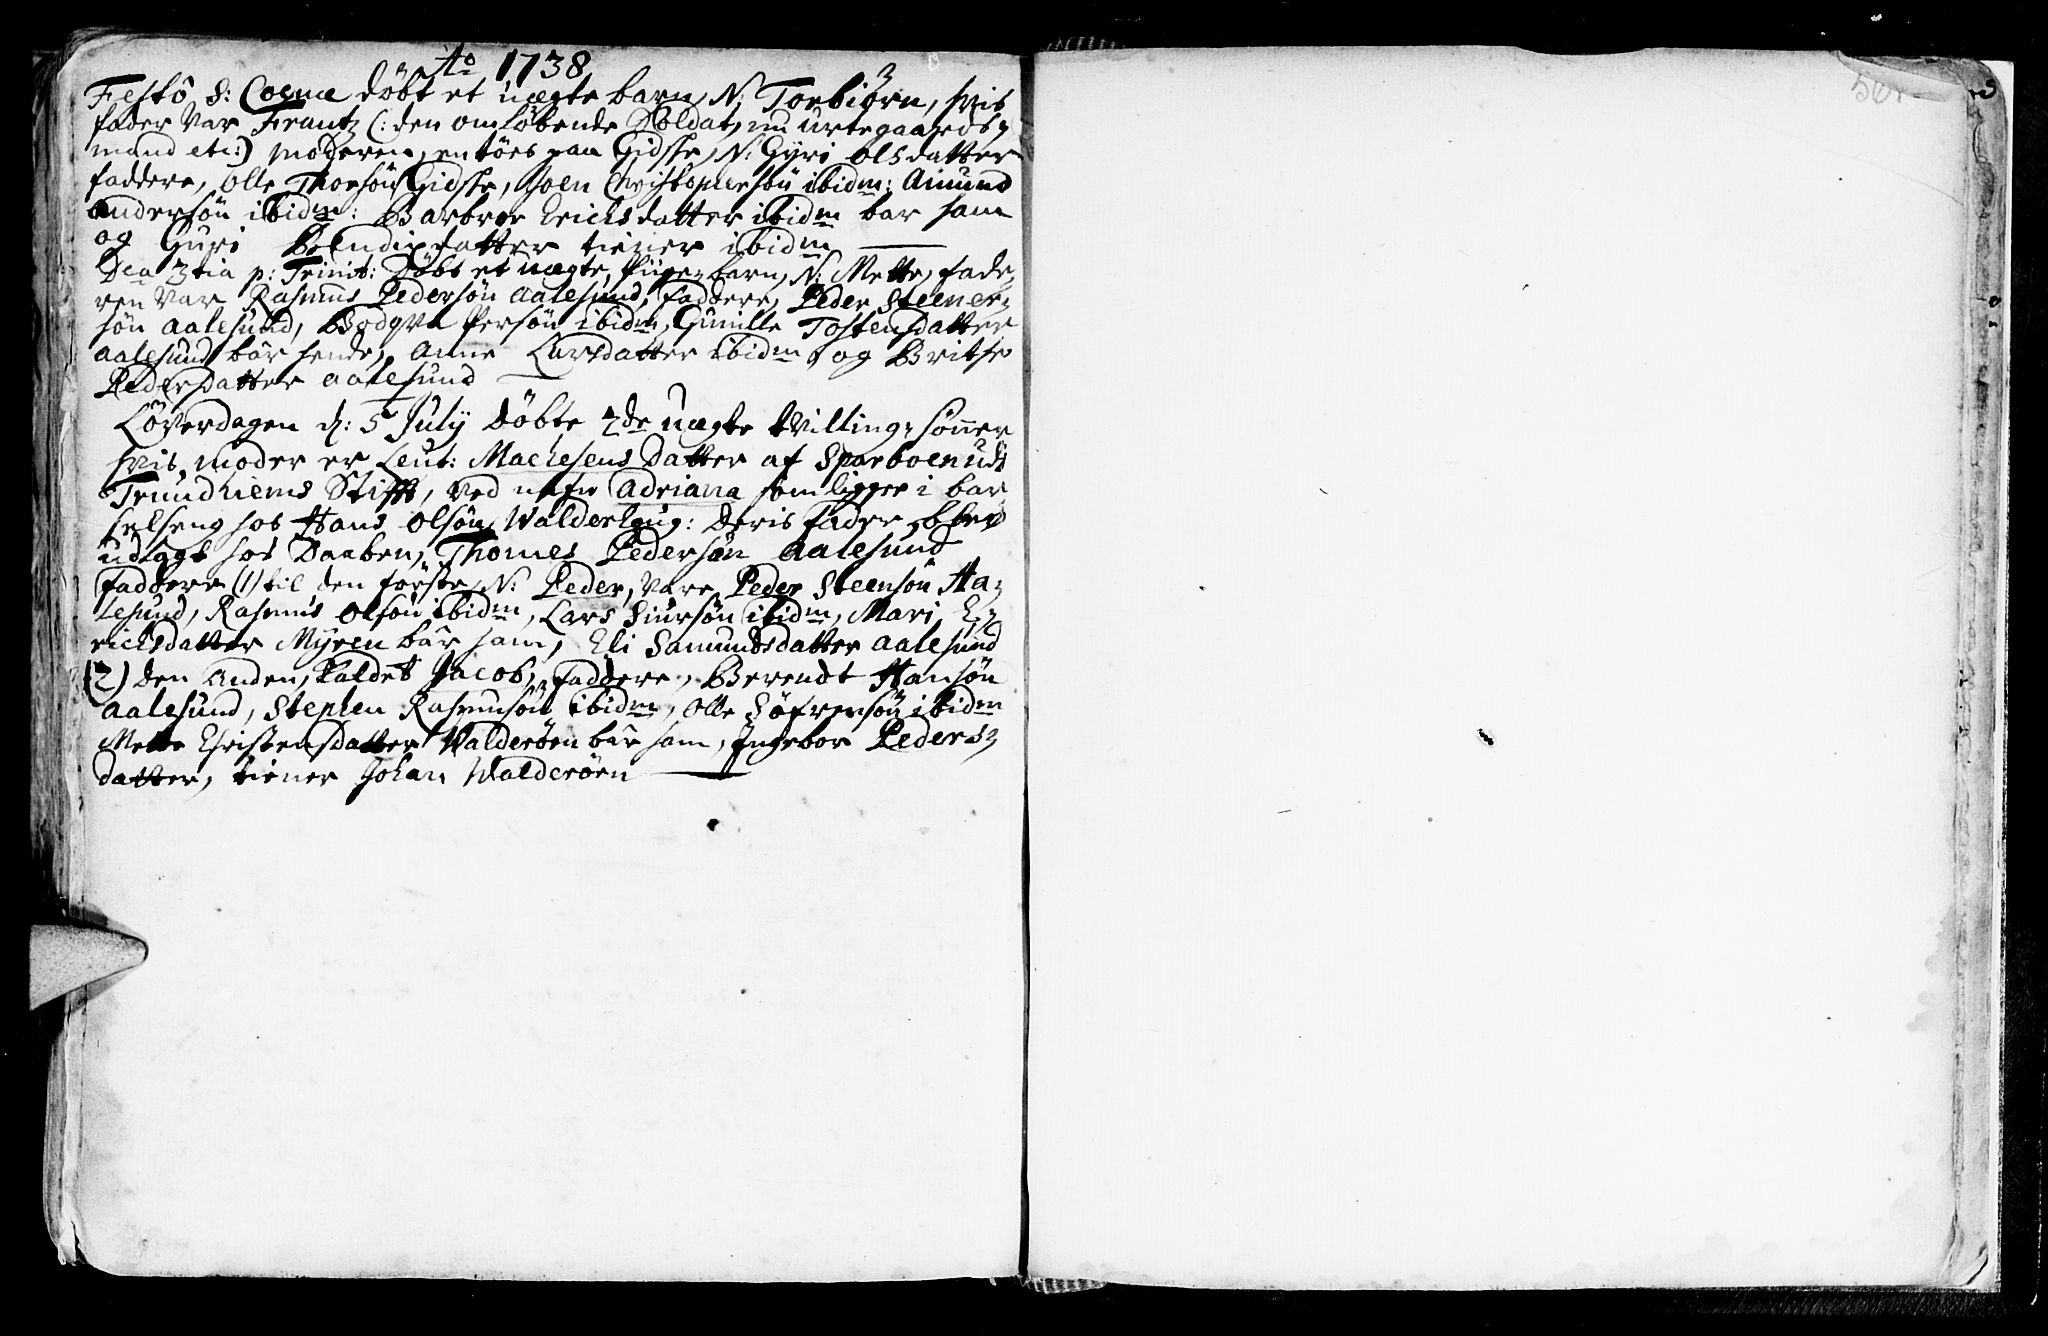 Ao 1738
Festô S: Cosmæ döbt et uægte barn, N: Torbiörn, hvis
fader var Frantz (: den omlöbende Soldat, nu urtegaards-
mand etc:) moderen, en tös paa Gidske, N: Gyri Olsdatter
faddere, Olle Thorsön Gidske, Joen Christophersön ibidm: Amund
Andersön ibidm: Barbroe Erichsdatter ibidm bar ham
og Guri Bendixdatter tiener ibidm
Dca 3tia p: Trinit: Döbt et uægte Pige-barn, N: Mette, fade-
ren var Rasmus Pedersön Aalesund, faddere, Peder Steener-
sön Aalesund, Persön ibidm, Gunille Tostensdatter
Aalesund bar hende, Anne Larsdatter ibidm, og Brithe
Pedersdatter Aalesund
Löverdagen d: 5 July Döbte 2de uægte tvilling-sönner
hvis moder er Leut: Machesens Datter af Sparboen udi
Trundhiems Stifft, ved nafn Adriana som ligger i bar
selseng hos Hans Olsön Walderhoug: deris fader, blev
udlagt hos Daaben, Thomes Pedersön Aalesund
faddere (1) til den förste N: Peder, vare Peder Steensön Aa-
lesund, Rasmus Olsön ibidm, Lars Siursön ibidm, Mari E-
richsdatter Myren bar ham, Eli Samundsdatter Aalesund
(2) den anden, kaldet Jacob, faddere, Berendt Hansön
Aalesund, Stephen Rasmusön ibidm, Olle Söfrensön ibidm
Mette Christensdatter Walderöen bar ham, Ingebor Peders-
datter, tiener Johan Walderöen